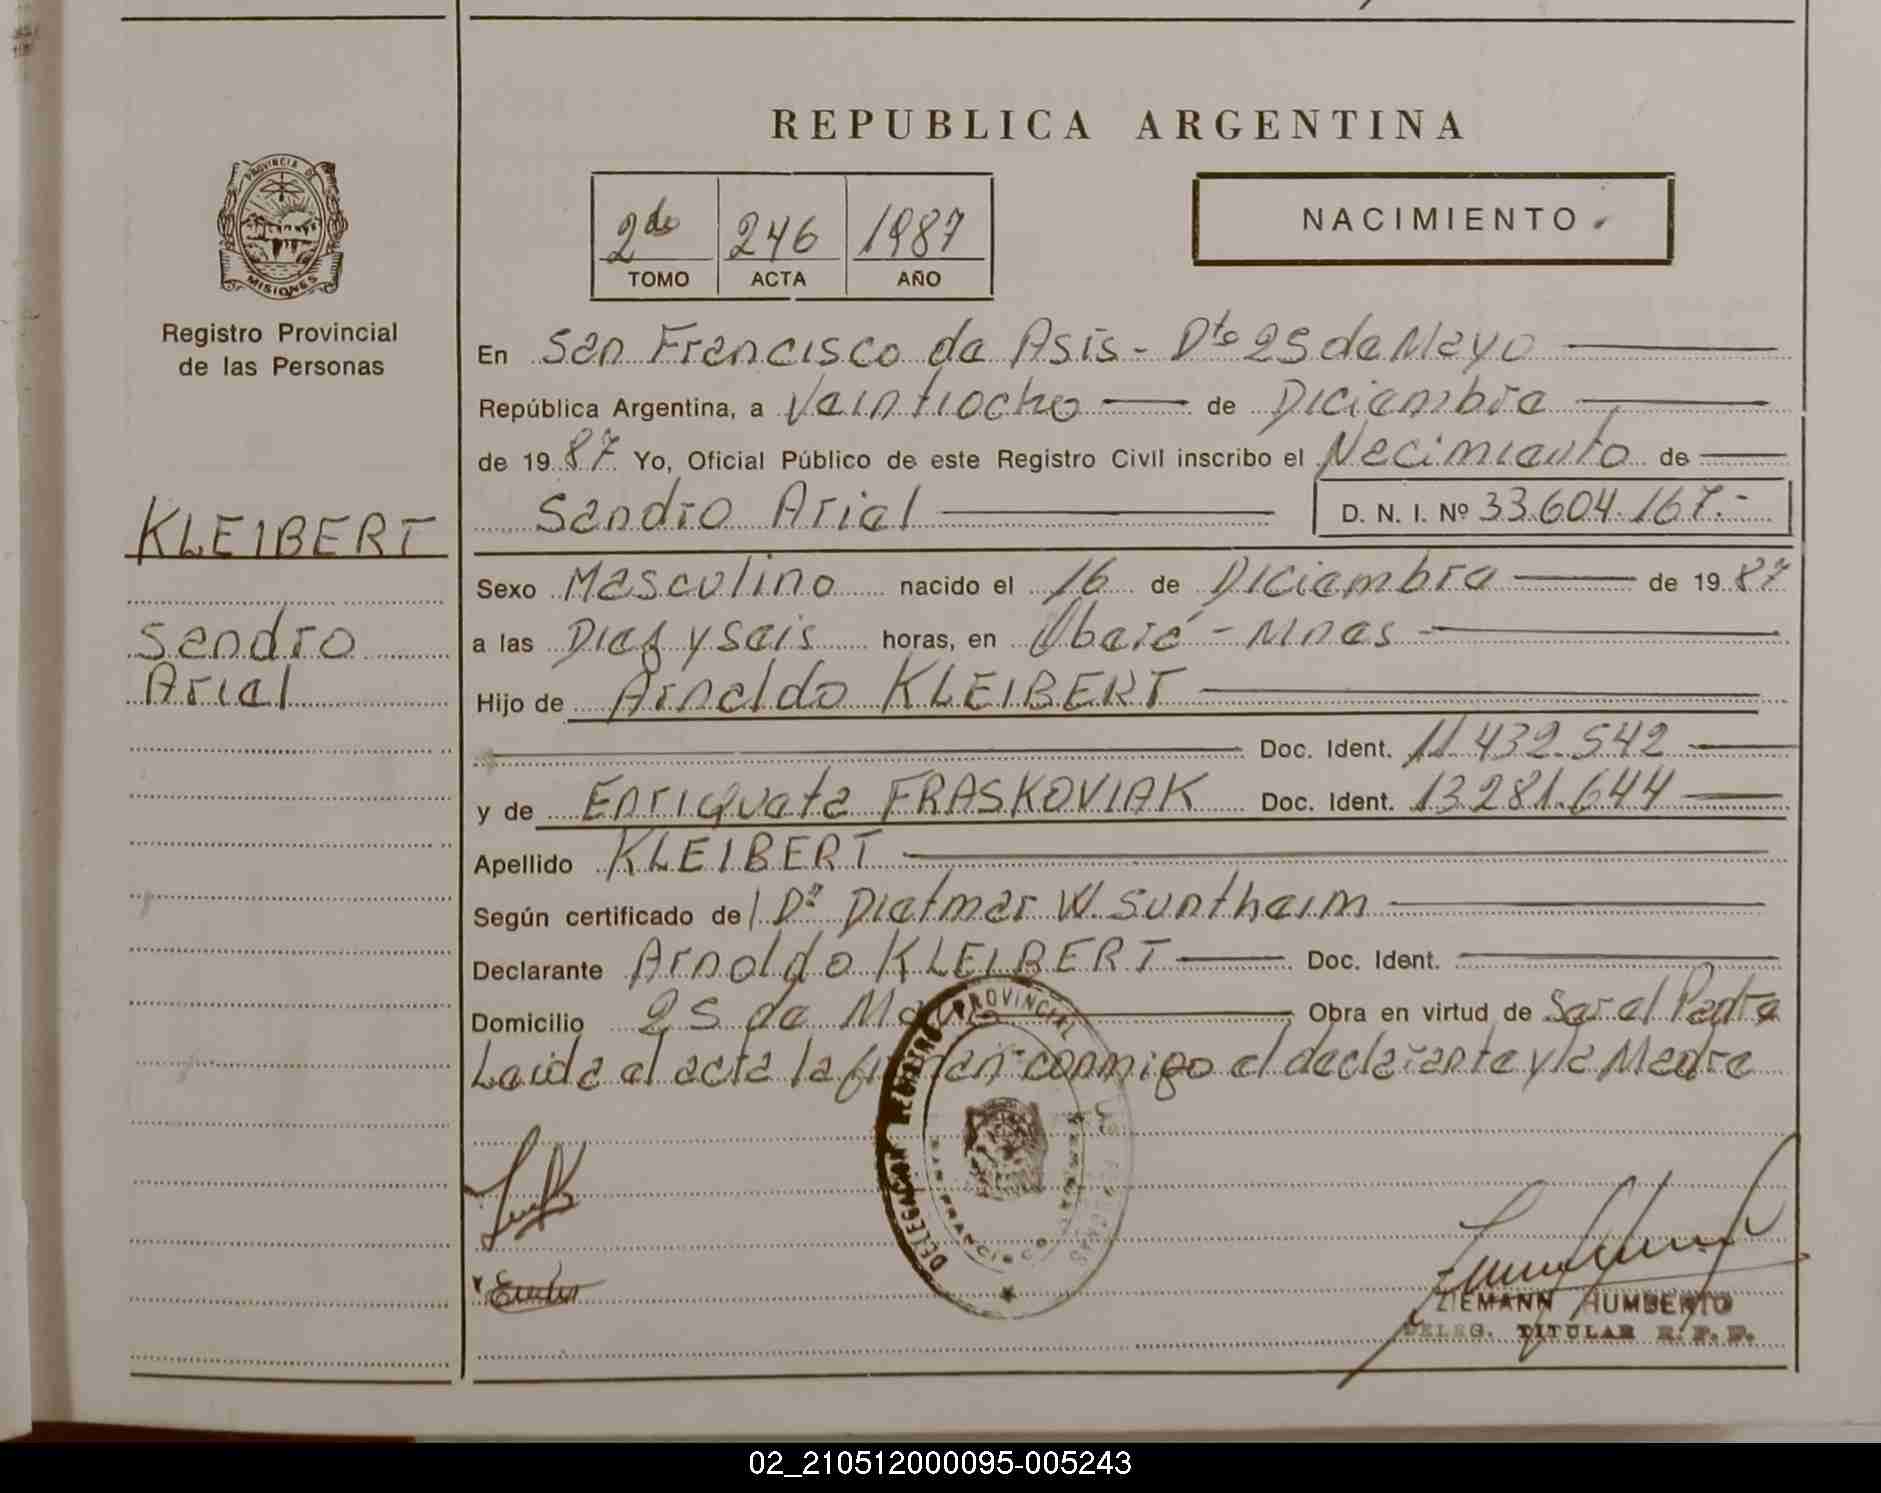 REPUBLICA ARGENTINA
PROVINCIA DE
MISIONES
Registro Provincial
de las Personas
KLEIBERT
Sandro
Ariel
2do 246 1987
TOMO ACTA AÑO
NACIMIENTO
En San Francisco de Asís - Dto 25 de Mayo
República Argentina, a Veintiocho de Diciembre
de 1987 Yo, Oficial Público de este Registro Civil inscribo el Nacimiento de
Sandro Ariel D. N. I. Nº 33.604.167.-
Sexo Masculino nacido el 16 de Diciembre de 1987
a las Diez y seis horas, en Oberá - Mnes -
Hijo de Arnoldo KLEIBERT
Doc. Ident. 11.432.542
y de Enriqueta FRASKOVIAK Doc. Ident. 13.281.644
Apellido KLEIBERT
Según certificado del Dr Dietmar W. Suntheim
Declarante Arnoldo KLEIBERT Doc. Ident.
Domicilio 25 de Mayo Obra en virtud de Ser el Padre
Leida el acta la firman conmigo el declarante y la Madre
DELEGACION REGISTRO PROVINCIAL DE LAS PERSONAS
SAN FRANCISCO
ZIEMANN HUMBERTO
DELEG. TITULAR R. P. P.
02_210512000095-005243